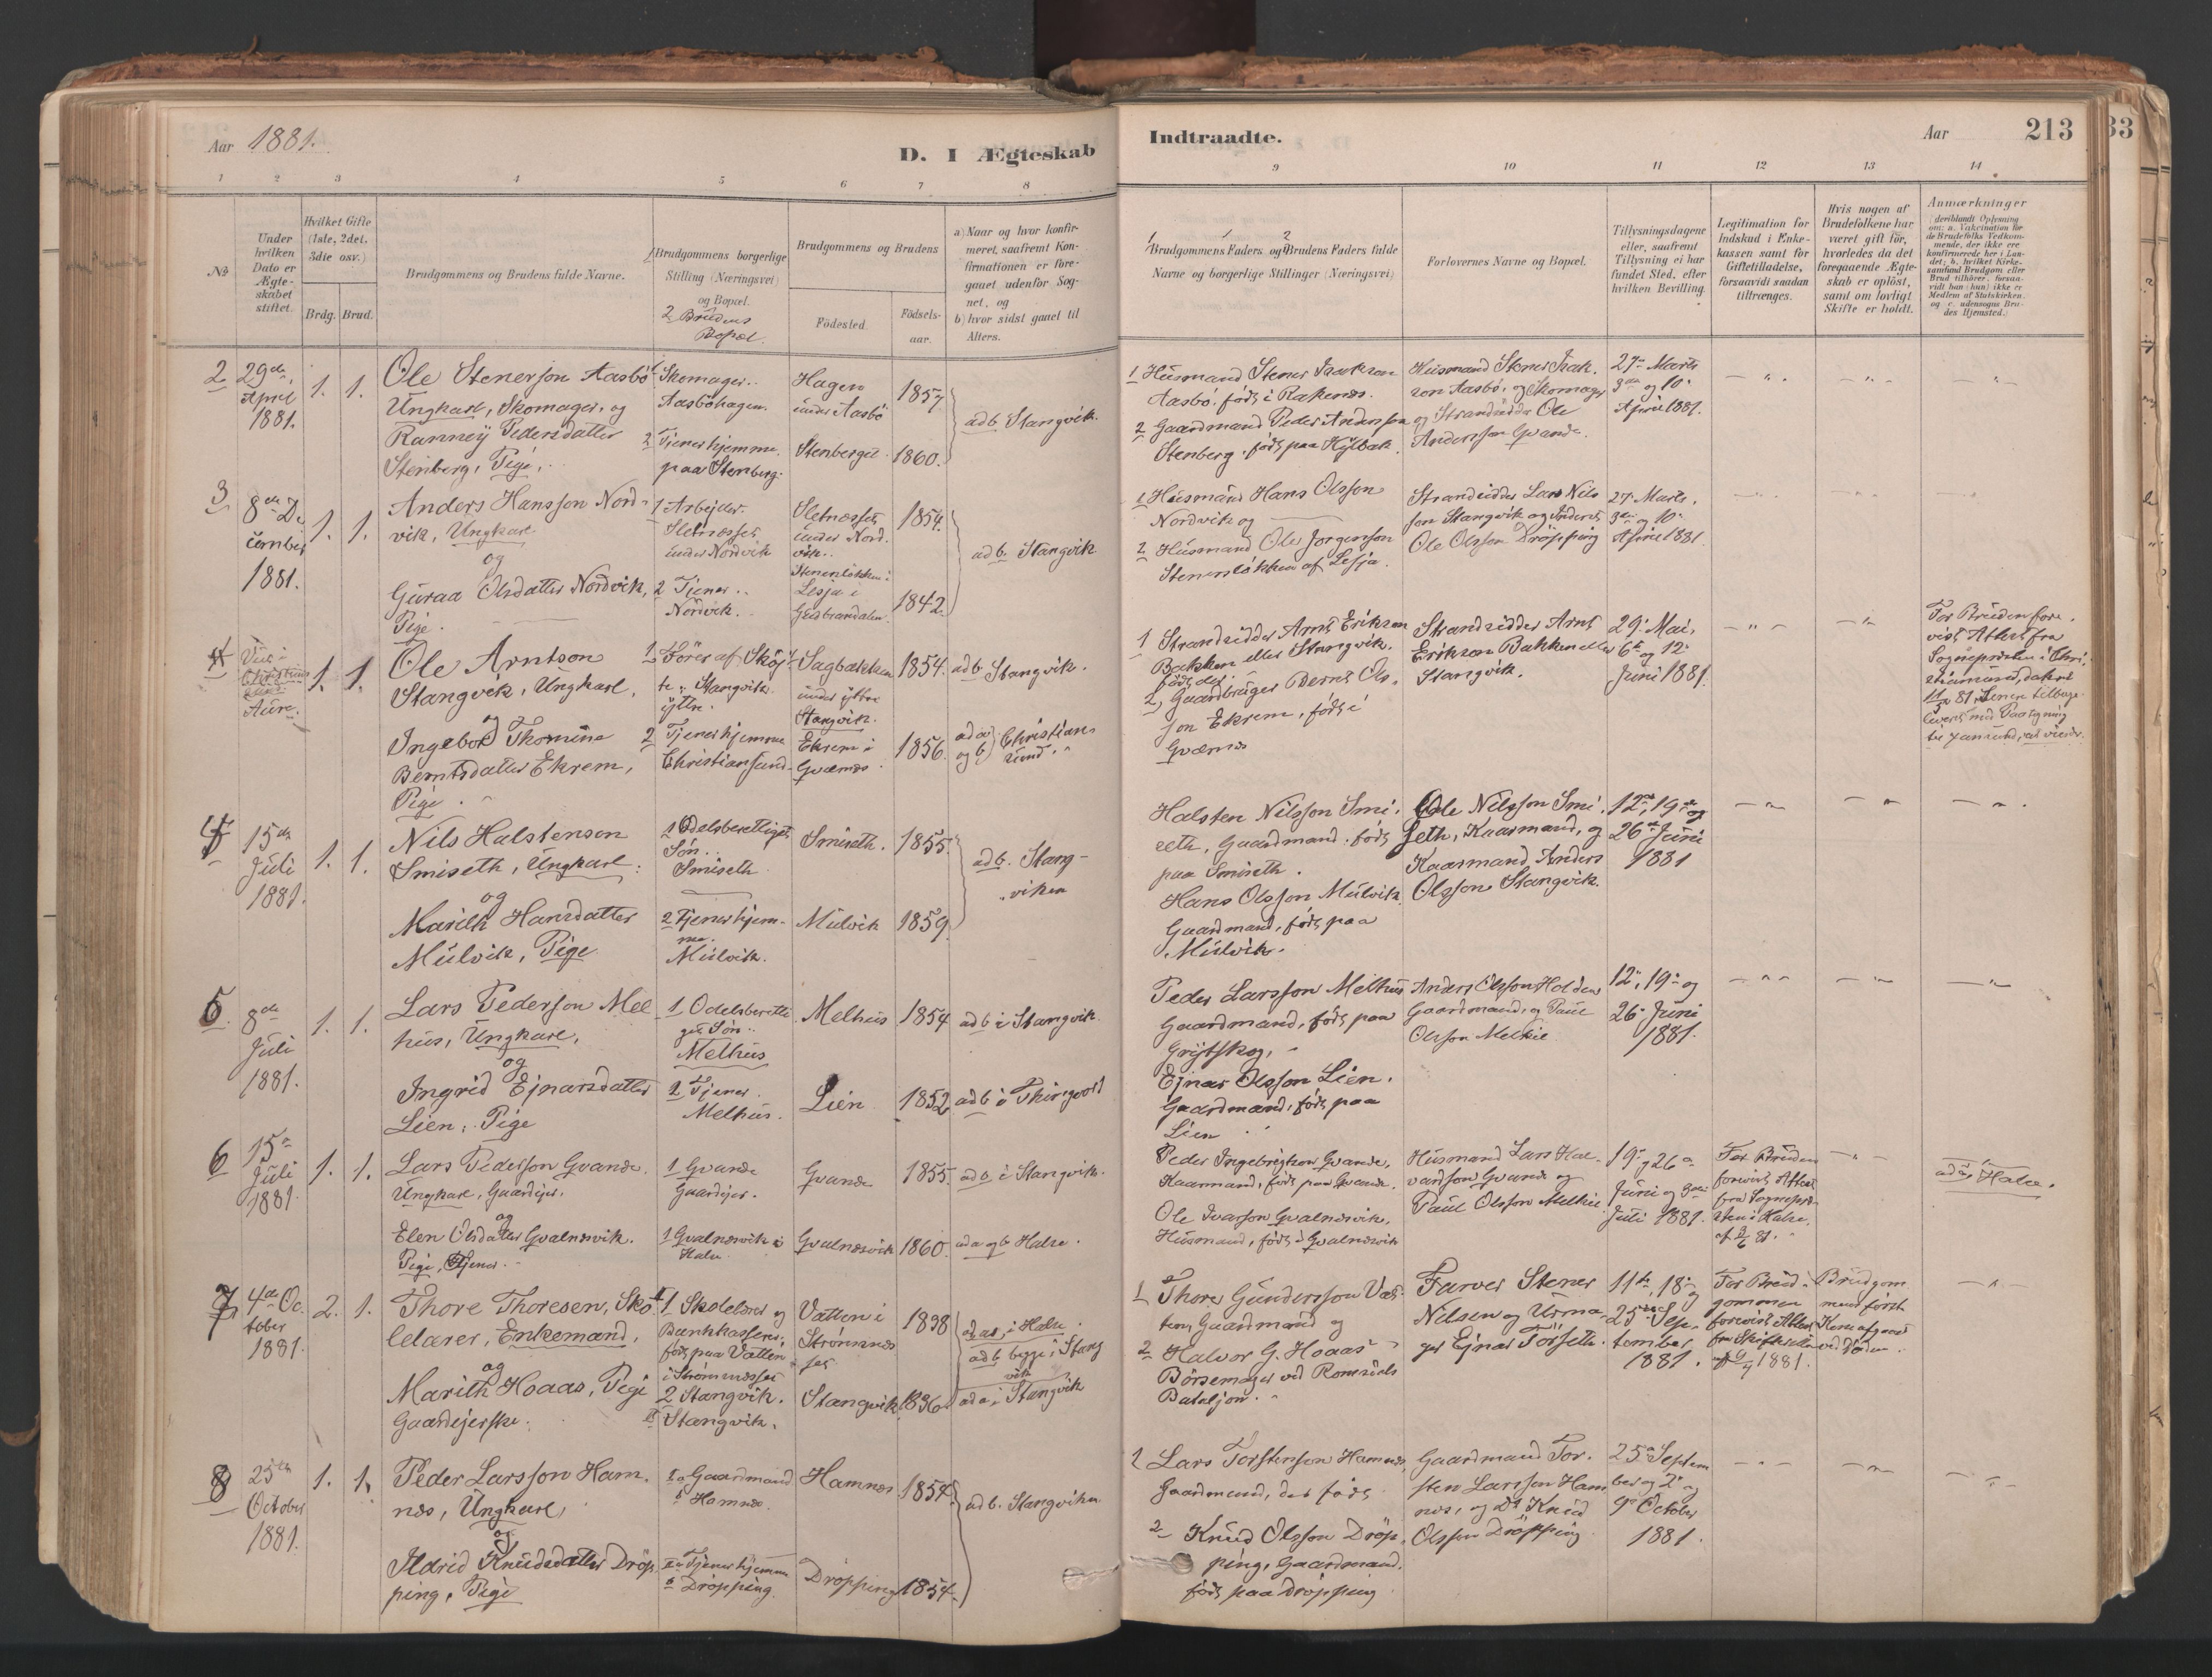 Aar 1881.
D. I Ægteskab
Indtraadte.
Aar
213
33
1 2 3 4 5 6 7 8 9 10 11 12 13 14
No
Under
hvilken
Dato er
Ægte-
skabet
stiftet.
Hvilket Gifte
(1ste, 2det,
3die osv.)
Brdg. Brud.
Brudgommens og Brudens fulde Navne.
1 Brudgommens borgerlige
Stilling (Næringsvei)
og Bopæl.
2 Brudens
Bopæl.
Brudgommens og Brudens
Födested.
Födsels-
aar.
a) Naar og hvor konfir-
meret, saafremt Kon-
firmationen er fore-
gaaet udenfor Sog-
net, og
b) hvor sidst gaaet til
Alters.
1 Brudgommens Faders og 2 Brudens Faders fulde
Navne og borgerlige Stillinger (Næringsvei)
Forlovernes Navne og Bopæl.
Tillysningsdagene
eller, saafremt
Tillysning ei har
fundet Sted, efter
hvilken Bevilling.
Legitimation for
Indskud i Enke-
kassen samt for
Giftetilladelse,
forsaavidt saadan
tiltrænges.
Hvis nogen af
Brudefolkene har
været gift för,
hvorledes da det
foregaaende Ægte-
skab er oplöst,
samt om lovligt
Skifte er holdt.
Anmærkninger
(deriblandt Oplysning
om: a. Vakcination för
de Brudefolks Vedkom-
mende, der ikke ere
konfirmerede her i Lan-
det; b. hvilket Kirke-
samfund Brudgom eller
Brud tilhörer, forsaa-
vidt han (hun) ikke er
Medlem af Statskirken,
og c. udensogns Bru-
des Hjemsted.)
2
29de
April
1881.
1. 1.
Ole Stenerson Aasbö
Ungkarl, Skomager, og
Ramney Pedersdatter
Stenberg, Pige.
1 Skomager
Aasböhagen.
2 Tjener hjemme
paa Stenberg.
Hagen
under Aasbö
Stenberget
1857
1860.
ad b Stangvik.
1 Husmand Stener Isakson
Aasbö, född i Rakenes.
2 Gaardmand Peder Anderson
Stenberg, född paa Hÿlbak.
Husmand Stener Isak-
son Aasbö, og Skomager
og Strandsidder Ole
Andersson Qvande.
27. Marts
3die og 10.
April 1881.
3
8de De
cember
1881.
1. 1.
Anders Hansson Nord-
vik, Ungkarl
og
Guraa Olsdatter Nordvik,
Pige.
1 Arbejder.
Sletnæsset
under Nordvik
2 Tjener
Nordvik.
Sletnæsset
under Nord.
vik.
Stenerslökken i
Lesja i
Gulbrandalen.
1854.
1842
ad b. Stangvik.
1 Husmand Hans Olsson
Nordvik og
2 Husmand Ole Jorgenson
Stenerslökken af Lesja.
Strandsidder Lars Nils
son Stangvik og
Ole Olsson Dröpping
27. Marts,
3die og 10.
April 1881.
4
Viet i
Aure.
1. 1.
Ole Arntson
Stangvik, Ungkarl,
og
Ingebor Thomine
Berntsdatter Ekrem,
Pige.
1 Förer af Sköj
te, Stangvik
ÿttre.
2 Tjener hjemme
Christiansund
Sagbakken
under ÿttre
Stangvik.
Ekrem i
Qvernes
1854.
1856.
ad b Stangvik.
ad a
og b Christian-
sund.
1 Strandsidder Arnt Erikson
Bakken eller Stangvik,
född der.
2, Gaardbruger Bernt Ols-
son Ekrem, född i
Qvernes
Strandsidder Arnt
Erikson Bakken eller
Stangvik.
29. Mai,
6te og 12.
Juni 1881.
For Bruden fore.
vist Attest fra
Sognepresten i Chri-
stiansund, dateret
5
15de
Juli
1881.
1. 1.
Nils Halstenson
Smiseth, Ungkarl:
og
Marith Hansdatter
Mulvik, Pige
1 Odelsberettiget
Sön.
Smiseth
2 Tjener hjem-
me.
Mulvik.
Smiseth.
Mulvik
1855.
1859.
ad b. Stang-
viken
Halsten Nilsson Smi-
seth, Gaardmand, född
paa Smiseth.
Hans Olsson Mulvik
Gaardmand, född paa
Mulvik.
Ole Nilsson Smi-
seth, Kaarmand, og
Kaarmand Anders
Olsson Stangvik.
12te, 19de og
26de Juni
1881
6.
8de
Juli
1881.
1. 1.
Lars Pederson Mel
hus, Ungkarl,
og
Ingrid Ejnarsdatter
Lien, Pige
1 Odelsberetti
get Sön.
Melhus
2 Tjener
Melhus.
Melhus
Lien
1854
1852
ad b i Stangvik.
ad b i Thingvold
Peder Larsson Melhus
Gaardmand, född paa
Grÿtskog,
Ejnar Olsson Lien,
Gaardmand, född paa
Lien
Anders Olsson Halden
Gaardmand, og Paul
Olsson Melkil
12., 19. og
26. Juni
1881.
6
15.
Juli
1881
1. 1.
Lars Pederson Qvande,
Ungkarl, Gaardejer,
og
Elen Olsdatter Qvalnesvik.
Pige, Tjener.
1 Qvande
Gaardejer.
1 Qvalnesvik i
Halse.
Qvande
Qvalnesvik
1855.
1860.
ad b i Stangvik.
ad a og b Halse.
Peder Ingebrigtson Qvande,
Kaarmand, född paa Qvande.
Ole Ivarson Qvalnesvik,
Husmand, född i Qvalnesvik
Husmand Lars Hal-
vardson Qvande og
Paul Olsson Melkil
19. 26.
Juni og 3die
Juli 1881.
For Bruden
forevist Attest
fra Sognepre-
sten i Halse,
Halse.
7
4de Oc
tober
1881
2. 1.
Thore Thoresen, Sko
lelærer, Enkemand,
og
Marith Hoaas, Pige
Gaardejerske.
1 Skolelærer og
Bankkasserer,
född paa Vatten
i Strömnesset
2 Stangvik.
Stangvik.
Vatten i
Strömnes
set
Stangvik
1838
1836
ad a, i Halse.
ad b begge i Stang
vik
ad a i Stangvik
1 Thore Gunderson Vat-
ten, Gaardmand og
2 Halvor G. Hoaas
Börsemager ved Romsdals
Bataljon.
Farver Stener
Nilsen og Urma-
ger Ejnar Torseth.
11te, 18. og
25. Sep-
tember
1881.
For Brud-
gommen
forevist Attest
fra Skifteretten
1881.
Brudgom
mens förste
Kone afgaaet
ved Döden.
8
25de
October
1881.
1. 1.
Peder Larsson Ham-
nes, Ungkarl,
og
Ildrid Knudsdatter Dröp-
ping, Pige
Gaardmand
Hamnes.
Tjener hjemme
Dröpping.
Hamnes
Dröpping
1854.
1854.
ad b. Stangviken
1 Lars Torstenson Hamnes,
Gaardmand, der född
2 Knud Olsson Dröp-
ping, Gaardmand,
född paa Dröpping
Gaardmand Tor-
sten Larsson Ham
nes, og Dt Knud
Olsson Dröpping
25. Septem
ber og 2. og
9. October
1881.